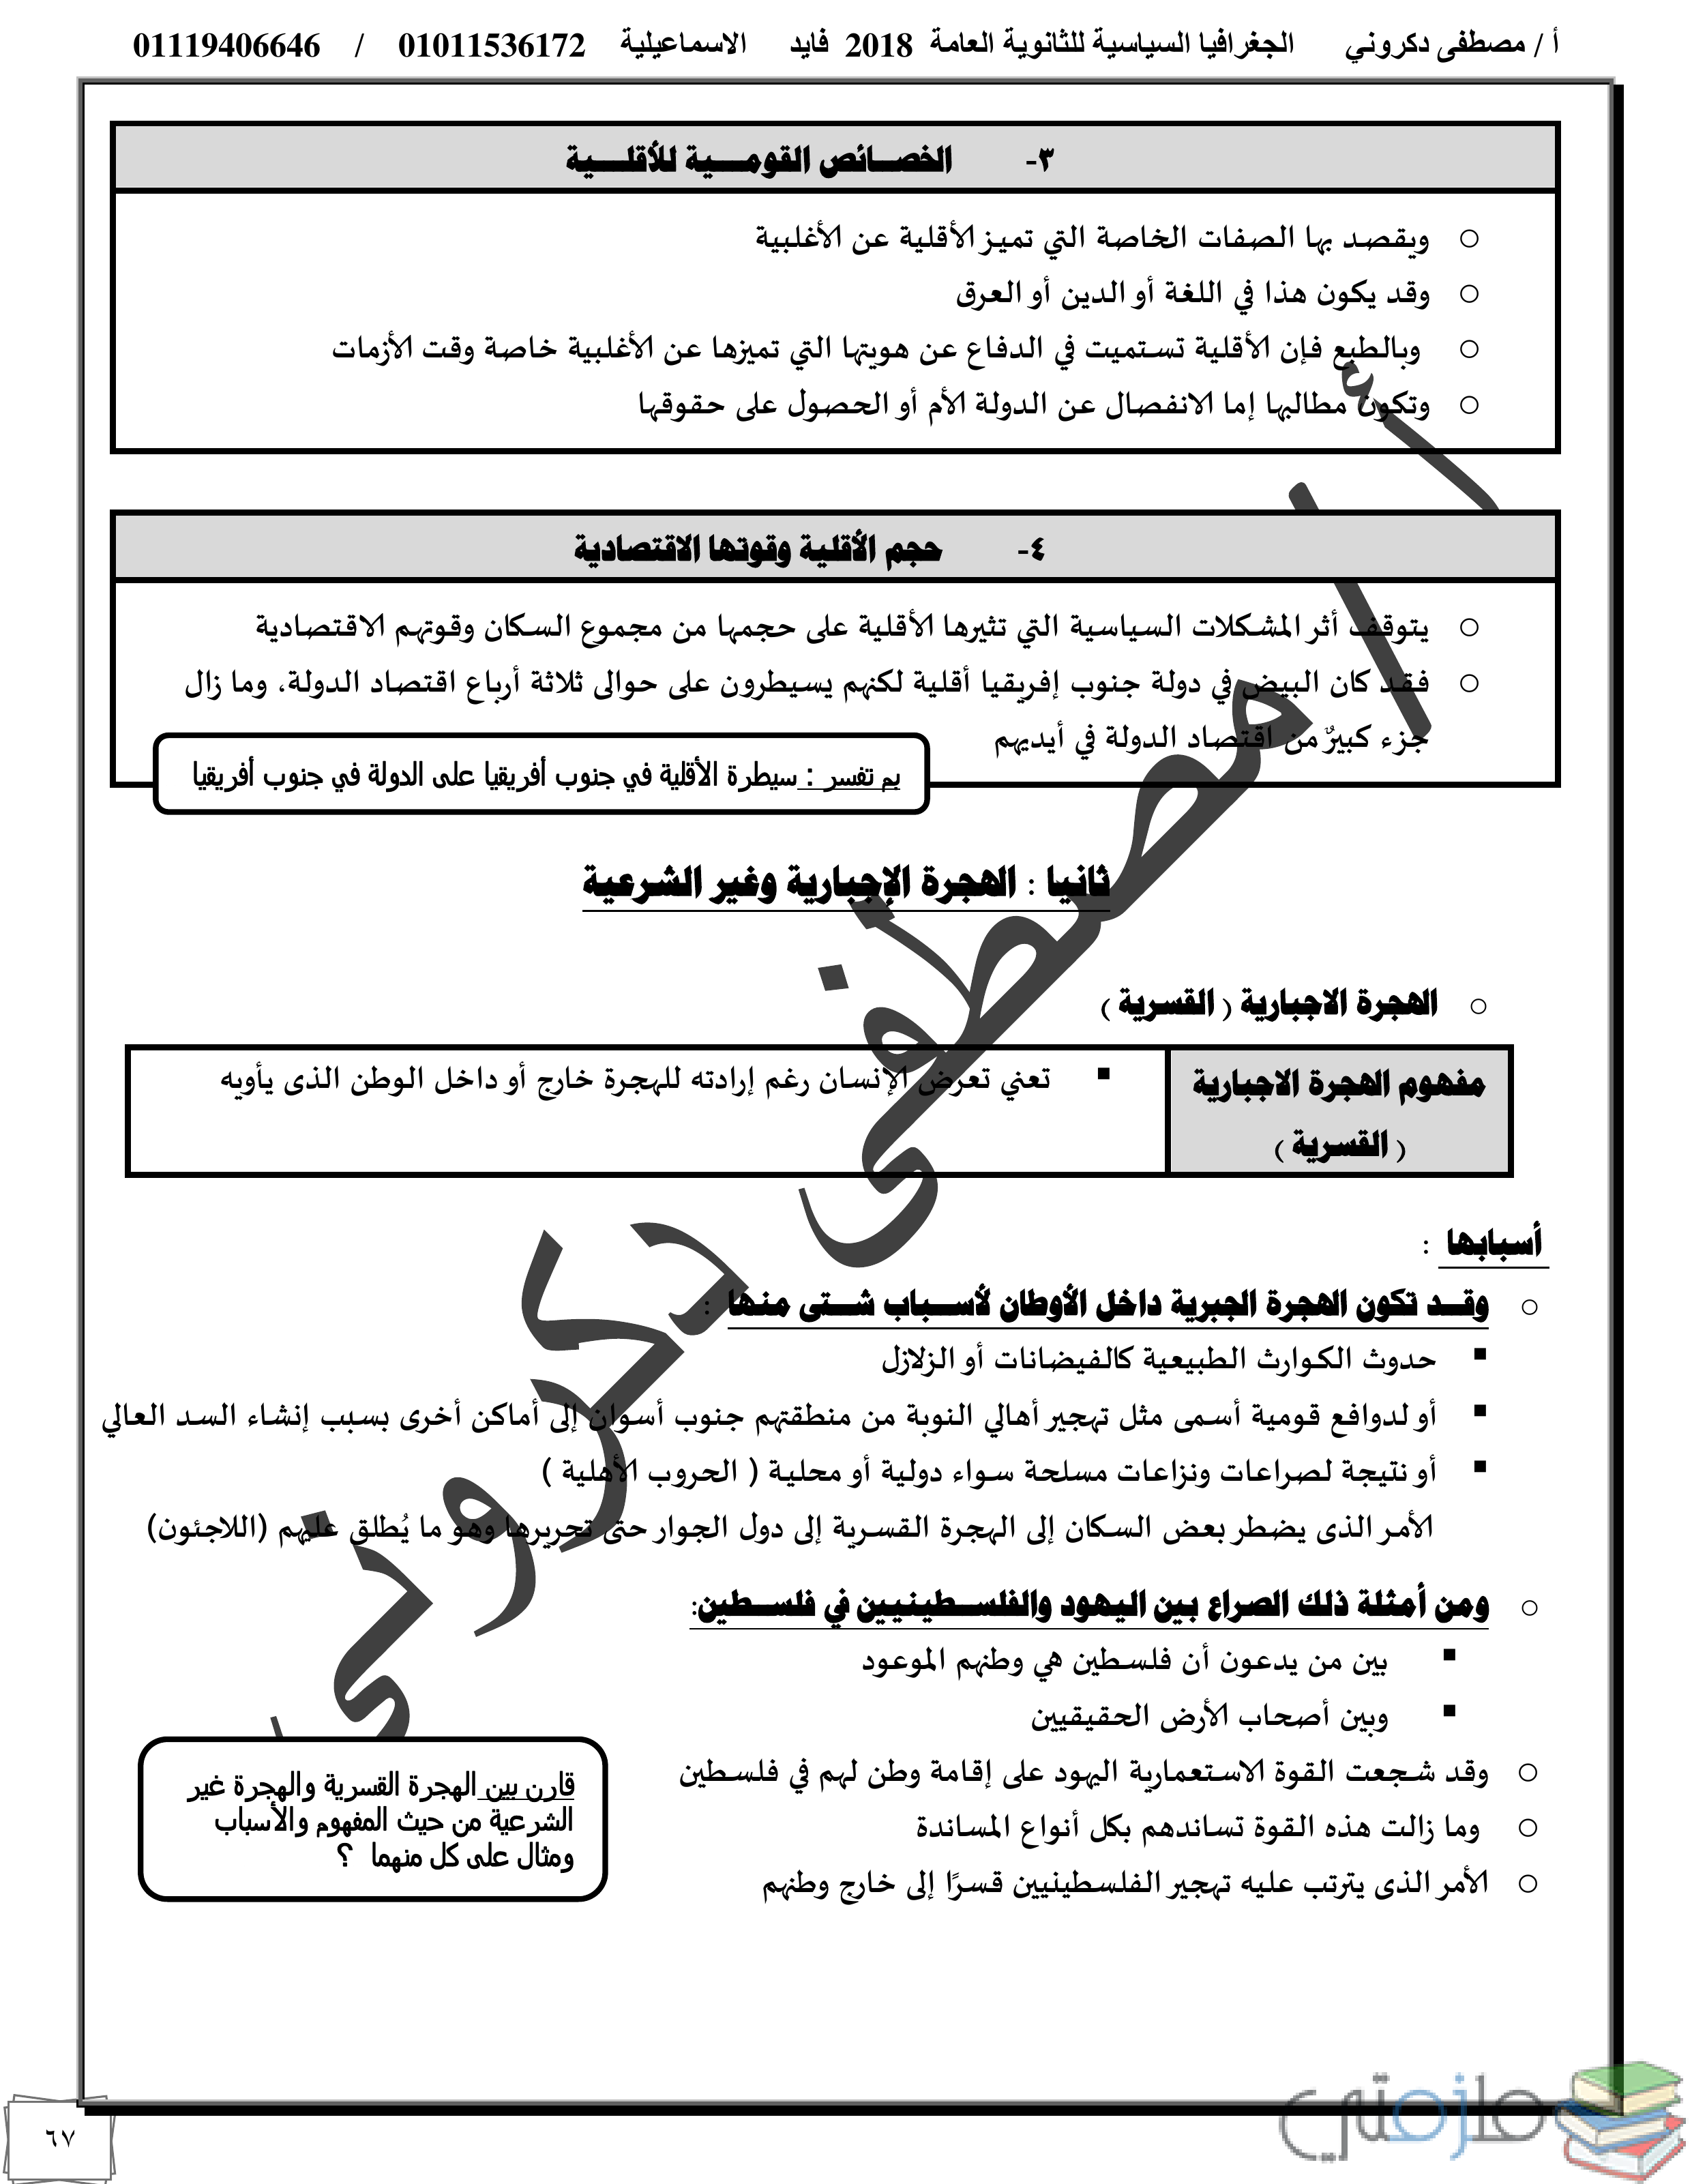 أ / مصطفى دكروني الجغرافيا السياسية للثانوية العامة 2018 فايد الاسماعيلية 01011536172 / 01119406646
٣- الخصـائص القومـية للأقلـية
ويقصد بها الصفات الخاصة التي تميز الأقلية عن الأغلبية
وقد يكون هذا في اللغة أو الدين أو العرق
وبالطبع فإن الأقلية تستميت في الدفاع عن هويتها التي تميزها عن الأغلبية خاصة وقت الأزمات
وتكون مطالبها إما الانفصال عن الدولة الأم أو الحصول على حقوقها
٤- حجم الأقلية وقوتها الاقتصادية
يتوقف أثر المشكلات السياسية التي تثيرها الأقلية على حجمها من مجموع السكان وقوتهم الاقتصادية
فقد كان البيض في دولة جنوب إفريقيا أقلية لكنهم يسيطرون على حوالى ثلاثة أرباع اقتصاد الدولة، وما زال
جزء كبيرٌ من اقتصاد الدولة في أيديهم
بم تفسر : سيطرة الأقلية في جنوب أفريقيا على الدولة في جنوب أفريقيا
ثانيا : الهجرة الإجبارية وغير الشرعية
الهجرة الاجبارية ( القسرية )
مفهوم الهجرة الاجبارية
( القسرية )
تعني تعرض الإنسان رغم إرادته للهجرة خارج أو داخل الوطن الذى يأويه
أسبابها :
وقـد تكون الهجرة الجبرية داخل الأوطان لأسـباب شـتى منها :
حدوث الكوارث الطبيعية كالفيضانات أو الزلازل
أو لدوافع قومية أسمى مثل تهجير أهالي النوبة من منطقتهم جنوب أسوان إلى أماكن أخرى بسبب إنشاء السد العالي
أو نتيجة لصراعات ونزاعات مسلحة سواء دولية أو محلية ( الحروب الأهلية )
الأمر الذى يضطر بعض السكان إلى الهجرة القسرية إلى دول الجوار حتى تحريرها وهو ما يُطلق عليهم (اللاجئون)
ومن أمثلة ذلك الصراع بين اليهود والفلسـطينيين في فلسـطين:
بين من يدعون أن فلسطين هي وطنهم الموعود
وبين أصحاب الأرض الحقيقيين
وقد شجعت القوة الاستعمارية اليهود على إقامة وطن لهم في فلسطين
وما زالت هذه القوة تساندهم بكل أنواع المساندة
الأمر الذى يترتب عليه تهجير الفلسطينيين قسرًا إلى خارج وطنهم
قارن بين الهجرة القسرية والهجرة غير
الشرعية من حيث المفهوم والأسباب
ومثال على كل منهما ؟
أ / مصطفى دكروني
٦٧
ملزمتي